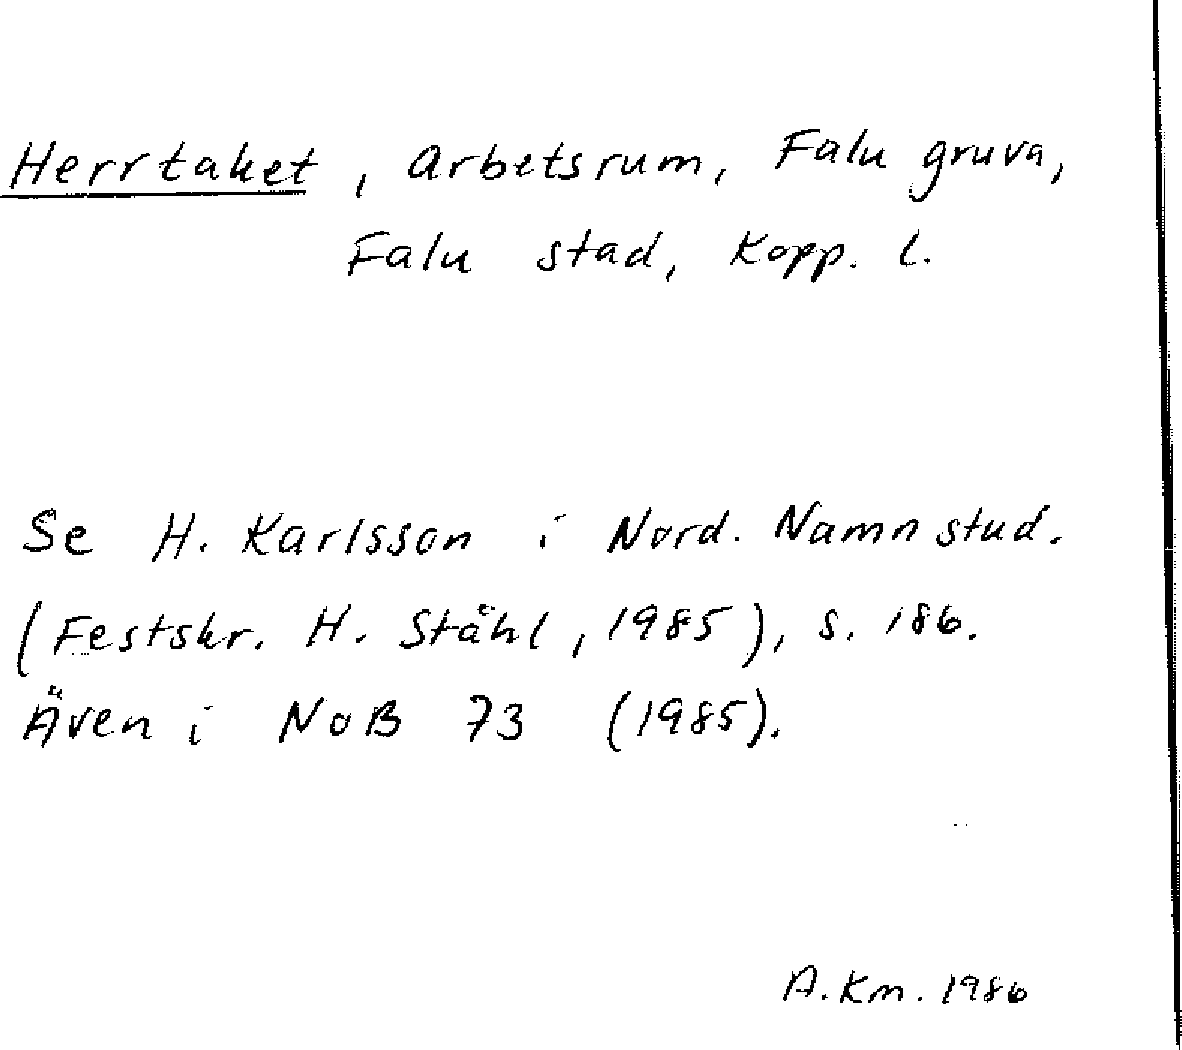 Herrtaket, Arbetsrum, Falu gruva,
Falu stad, Kopp. l.
Se H. Karlsson i Nord. Namnstud.
(Festskr. H. Ståhl, 1985), s. 186.
Även i NoB 73 (1985).
A. Km. 1986